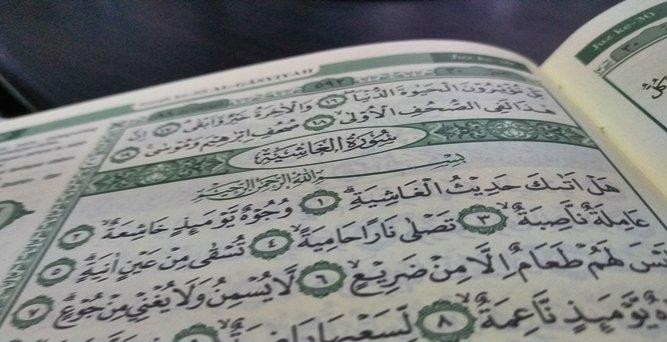 AL-GASYIYAH
٥٩٢
Juz ke-30
٣٠
بَلْ تُؤْثِرُوْنَ الْحَيٰوةَ الدُّنْيَا ۖ ١٦ وَالْاٰخِرَةُ خَيْرٌ وَّاَبْقٰى ۗ ١٧ اِنَّ
هٰذَا لَفِى الصُّحُفِ الْاُوْلٰى ۙ ١٨ صُحُفِ اِبْرٰهِيْمَ وَمُوْسٰى ࣖ ١٩
سُوْرَةُ الْغَاشِيَةِ
بِسْمِ اللّٰهِ الرَّحْمٰنِ الرَّحِيْمِ
هَلْ اَتٰىكَ حَدِيْثُ الْغَاشِيَةِ ۗ ١ وُجُوْهٌ يَّوْمَىِٕذٍ خَاشِعَةٌ ۙ ٢
عَامِلَةٌ نَّاصِبَةٌ ۙ ٣ تَصْلٰى نَارًا حَامِيَةً ۙ ٤ تُسْقٰى مِنْ عَيْنٍ اٰنِيَةٍ ۗ ٥
لَهُمْ طَعَامٌ اِلَّا مِنْ ضَرِيْعٍ ۙ ٦ لَّا يُسْمِنُ وَلَا يُغْنِيْ مِنْ جُوْعٍ ۗ ٧
يَّوْمَىِٕذٍ نَّاعِمَةٌ ۙ ٨ لِّسَعْيِهَا رَاضِيَةٌ